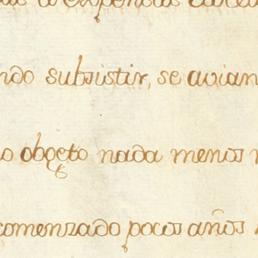 a expensas
ndo subsistir, se avian
o obgeto nada menos
comenzado pocos años